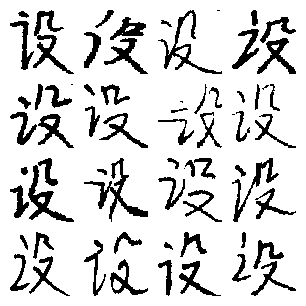 设设设设
设设设设
设设设设
设设设设